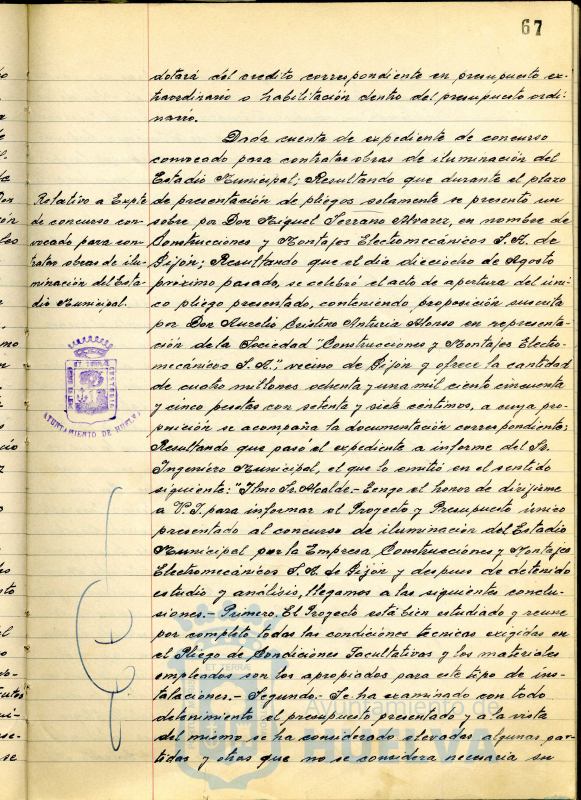 67
dotará del credito correspondiente en presupuesto ex-
traordinario o habilitación dentro del presupuesto ordi-
nario.
Dada cuenta de expediente de concurso
convocado para contratar obras de iluminación del
Estadio Municipal; Resultando que durante el plazo
de presentación de pliegos solamente se presentó un
sobre por Don Miguel Serrano Alvarez, en nombre de
Construcciones y Montajes Electromecánicos S.A. de
Gijón; Resultando que el dia dieciocho de Agosto
proximo pasado, se celebró el acto de apertura del uni-
co pliego presentado, conteniendo proposición suscrita
por Don Aurelio Cristino Anturia Alonso en representa-
ción de la Sociedad "Construcciones y Montajes Electro-
mecánicos S.A.", vecino de Gijón y ofrece la cantidad
de cuatro millones ochenta y una mil ciento cincuenta
y cinco pesetas con setenta y siete centimos, a cuya pro-
posición se acompaña la documentación correspondiente;
Resultando que pasó el expediente a informe del Sr.
Ingeniero Municipal, el que lo emitió en el sentido
siguiente: "Ilmo Sr. Alcalde.- Tengo el honor de dirijirme
a V.I. para informar el Proyecto y Presupuesto único
presentado al concurso de iluminación del Estadio
Municipal por la Empresa Construcciones y Montajes
Electromecánicos S.A. de Gijón y despues de detenido
estudio y análisis, llegamos a las siguientes conclu-
siones.- Primero. El Proyecto está bien estudiado y reune
por completo todas las condiciones tecnicas exigidas en
el Pliego de Condiciones Facultativas y los materiales
empleados son los apropiados para este tipo de ins-
talaciones.- Segundo.- Se ha examinado con todo
detenimiento el presupuesto presentado y a la vista
del mismo se ha considerado elevadas algunas par-
tidas y otras que no se considera necesaria su
Relativo a Expte
de concurso con-
vocado para con-
tratar obras de ilu-
minación del Esta-
dio Municipal.
AYUNTAMIENTO DE HUELVA
ET TERRÆ
Ayuntamiento de
HUELVA